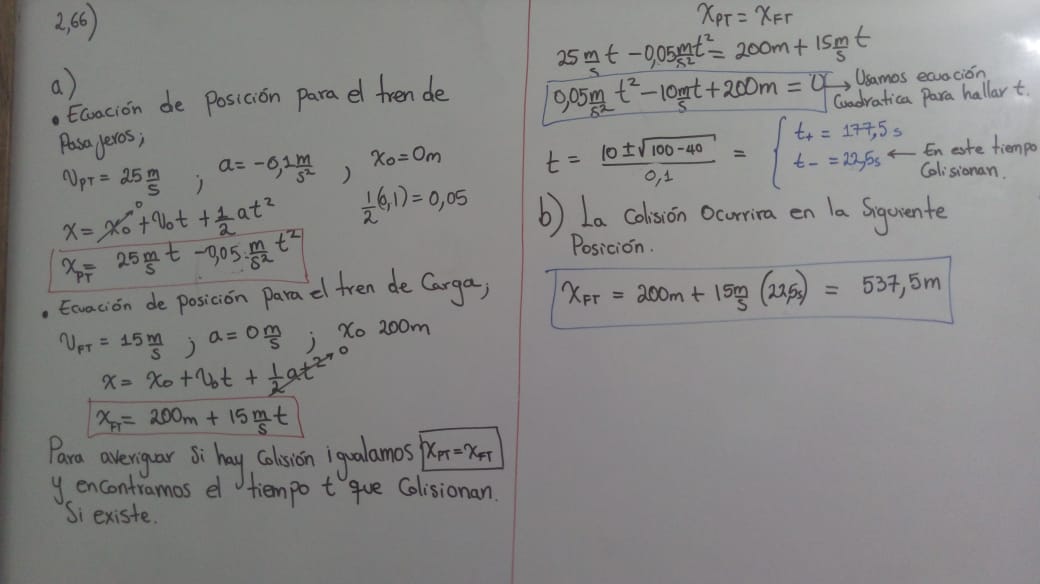 2,66)
a)
• Ecuación de Posición para el tren de
Pasajeros;
V_PT = 25 m/s ; a = -0,1 m/s² , x₀ = 0m
x = x₀→0 + V₀t + 1/2 at²
1/2 (0,1) = 0,05
x_PT = 25 m/s t - 0,05 m/s² t²
• Ecuación de posición para el tren de Carga;
V_FT = 15 m/s ; a = 0 m/s ; x₀ 200m
x = x₀ + V₀t + 1/2 at²→0
x_FT = 200m + 15 m/s t
Para averiguar Si hay Colisión igualamos x_PT = x_FT
y encontramos el tiempo t que Colisionan.
Si existe.
x_PT = x_FT
25 m/s t - 0,05 m/s² t² = 200m + 15 m/s t
0,05 m/s² t² - 10 m/s t + 200m = 0 → Usamos ecuación
Cuadratica Para hallar t.
t = (10 ± √(100-40))/0,1 = { t₊ = 177,5 s
t₋ = 22,5s ← En este tiempo
Colisionan.
b) La Colisión Ocurrira en la Siguiente
Posición.
x_FT = 200m + 15 m/s (22,5s) = 537,5m